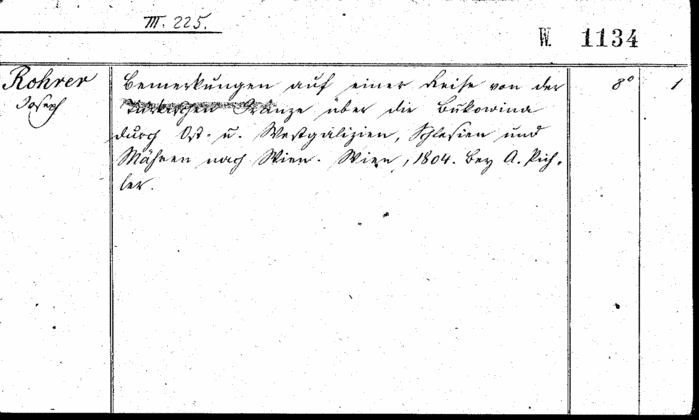 III. 225.
W. 1134
Rohrer
Joseph
Bemerkungen auf einer Reise von der
Türkischen Gränze über die Bukowina
durch Ost- u. Westgalizien, Schlesien und
Mähren nach Wien. Wien, 1804. bey A. Pich-
ler.
8°
1